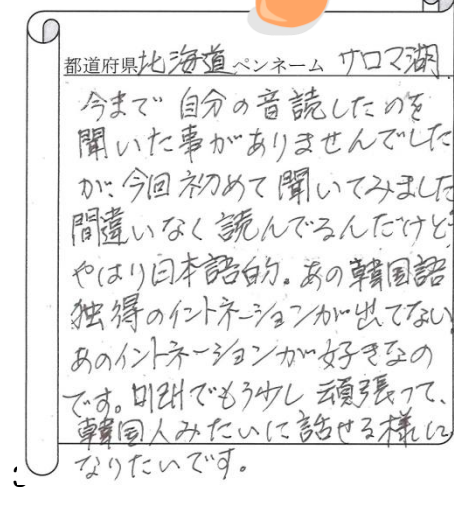 都道府県北海道 ペンネーム サロマ湖
今まで自分の音読したのを
聞いた事がありませんでした
が、今回初めて聞いてみました
間違いなく読んでるんだけど
やはり日本語的。あの韓国語
独得のイントネーションが出てない
あのイントネーションが好きなの
です。미래でもう少し頑張って、
韓国人みたいに話せる様に
なりたいです。